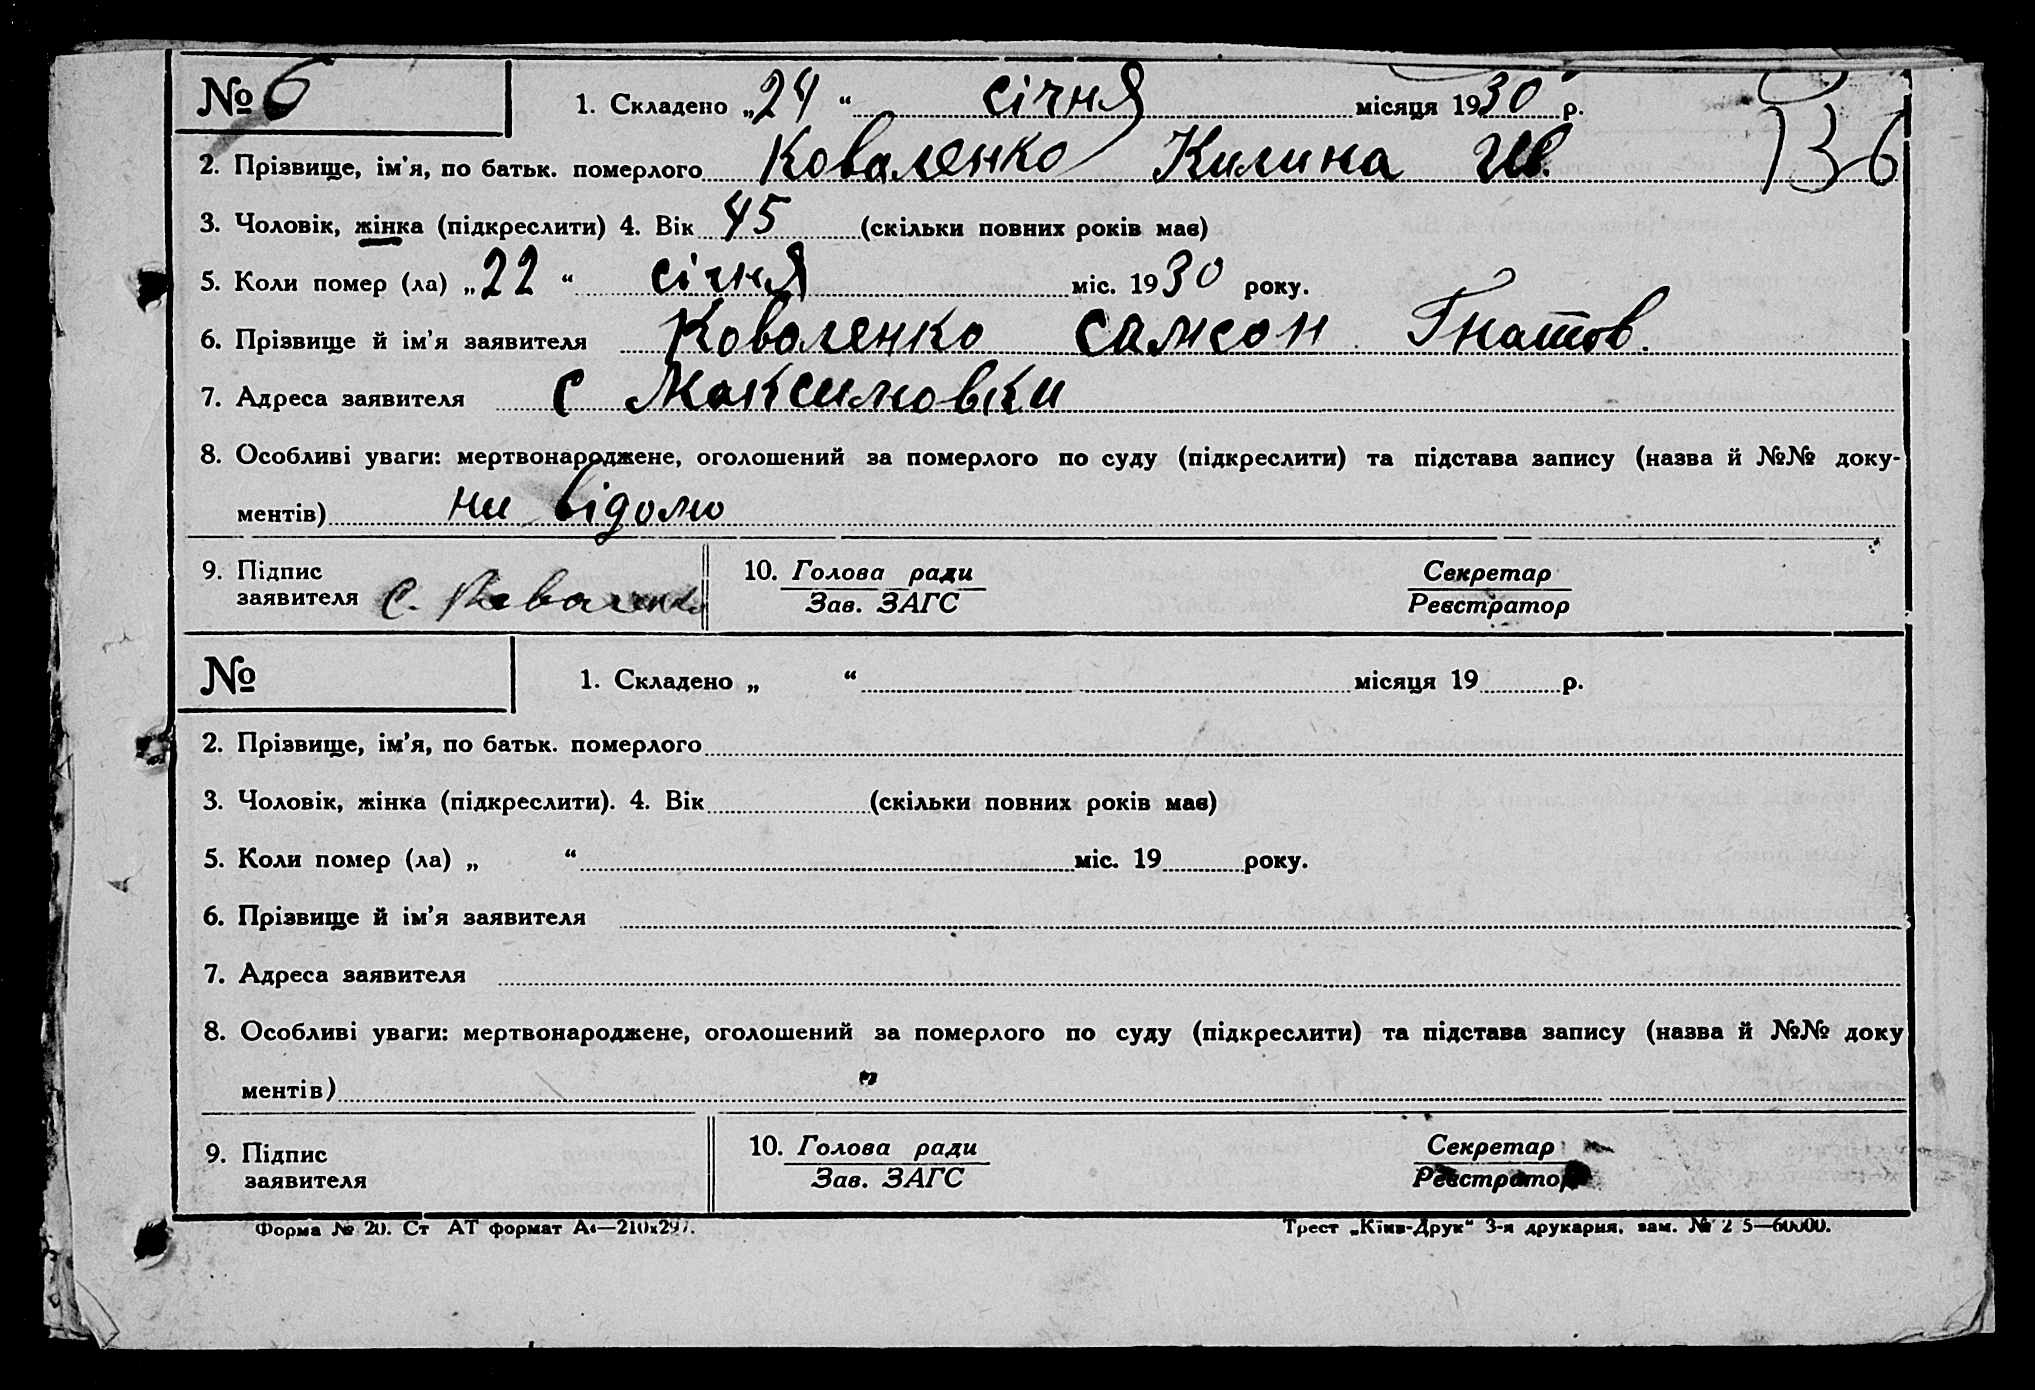 № 6 1. Складено „24 “ січня місяця 1930 р.
136
2. Прізвище, ім'я, по батьк. померлого Коваленко Килина Ів.
3. Чоловік, жінка (підкреслити) 4. Вік 45 (скільки повних років має)
5. Коли помер (ла) „22 “ січня міс. 1930 року.
6. Прізвище й ім'я заявителя Коваленко Самсон Гнатов.
7. Адреса заявителя с Максимовки
8. Особливі уваги: мертвонароджене, оголошений за померлого по суду (підкреслити) та підстава запису (назва й №№ доку-
ментів) ни відомо
9. Підпис заявителя С. Коваленко 10. Голова ради Зав. ЗАГС Секретар Реєстратор
№ 1. Складено „ “ місяця 19 р.
2. Прізвище, ім'я, по батьк. померлого
3. Чоловік, жінка (підкреслити). 4. Вік (скільки повних років має)
5. Коли помер (ла) „ “ міс. 19 року.
6. Прізвище й ім'я заявителя
7. Адреса заявителя
8. Особливі уваги: мертвонароджене, оголошений за померлого по суду (підкреслити) та підстава запису (назва й №№ доку
ментів) „
9. Підпис заявителя 10. Голова ради Зав. ЗАГС Секретар Реєстратор
Форма № 20. Ст АТ формат А4—210х297. Трест „Київ-Друк“ 3-я друкарня, зам. №